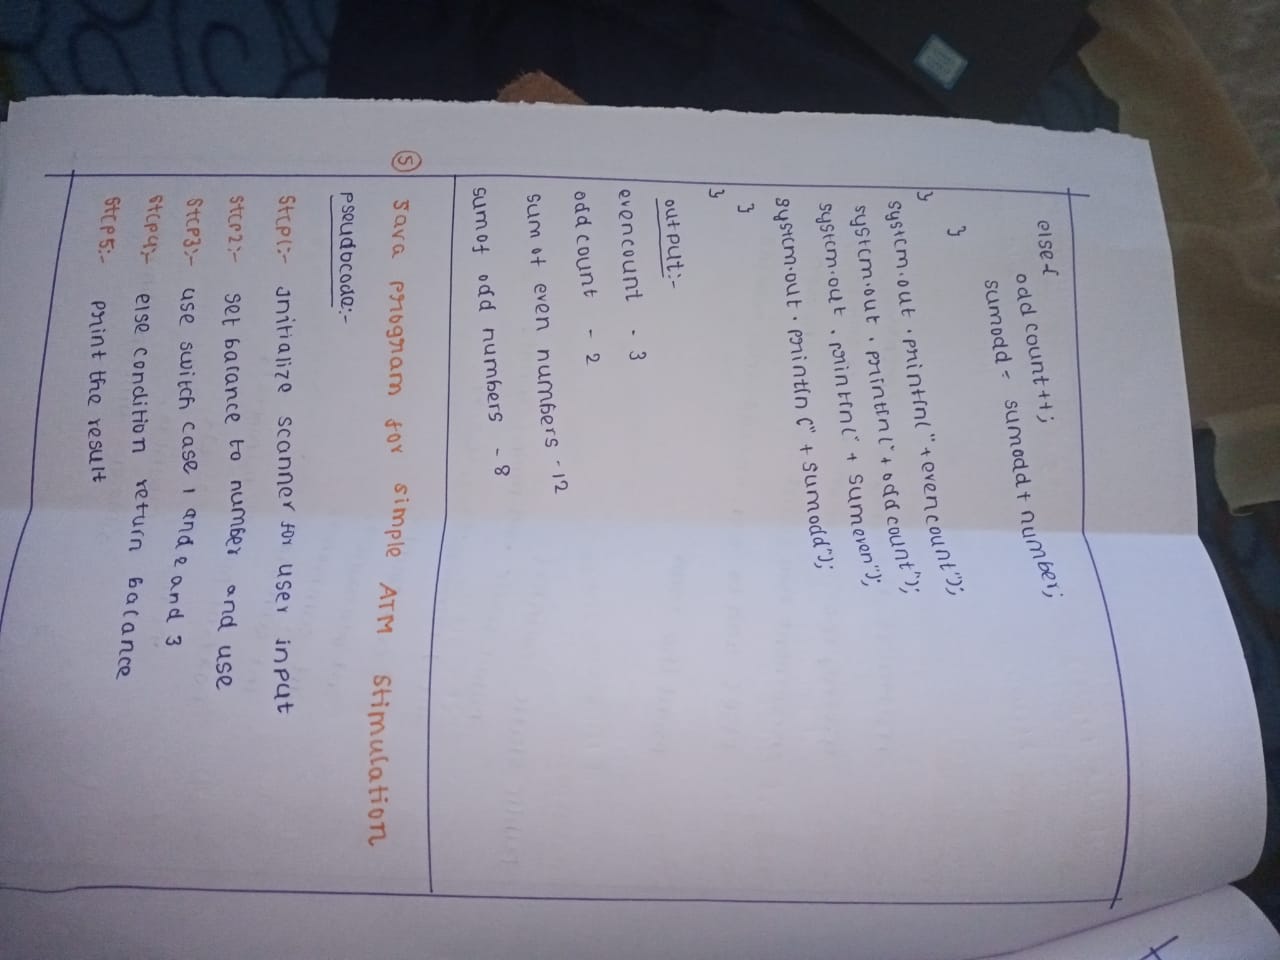 else{
odd count++;
sumodd = sumodd + number;
}
}
system.out.println("+evencount");
system.out.println("+oddcount");
system.out.println("+ sumeven");
system.out.println("+ sumodd");
}
}
output:-
evencount - 3
odd count - 2
sum of even numbers - 12
sum of odd numbers - 8
5 Java program for simple ATM Stimulation
pseudocode:-
Step1:- Initialize scanner for user input
Step2:- set balance to number and use
Step3:- use switch case 1 and 2 and 3
Step4:- else condition return balance
Step5:- print the result